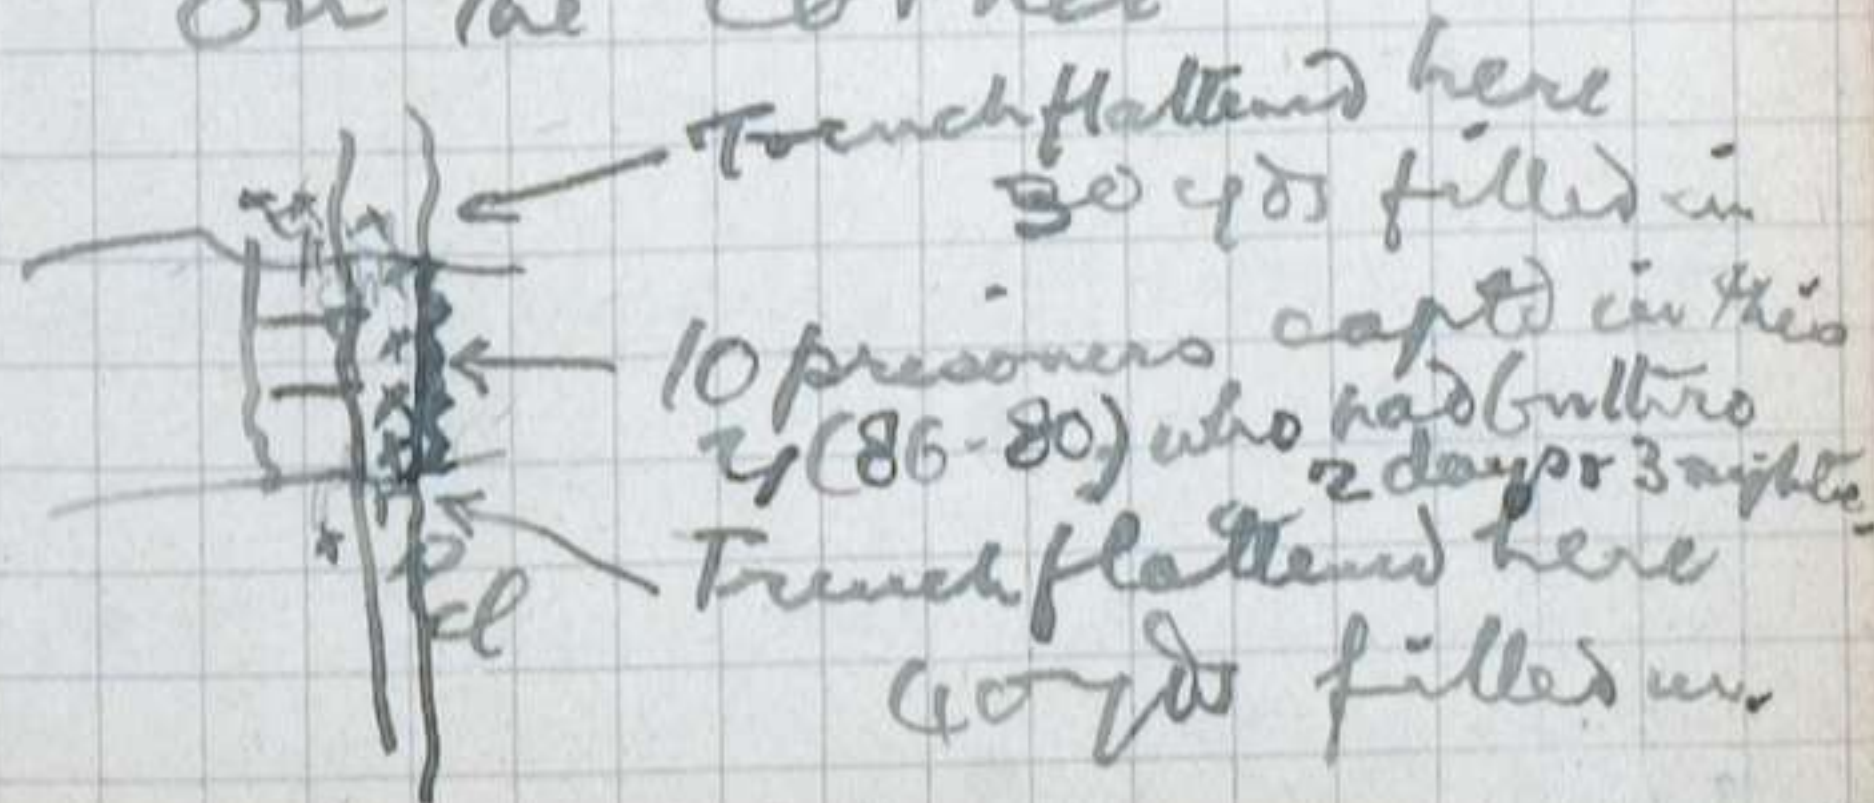 on the corner
Trench flattened here
30 yds filled in
10 prisoners captd in this
(86-80) who had
2 days or 3 nights
Trench flattened here
40 yds filled in.